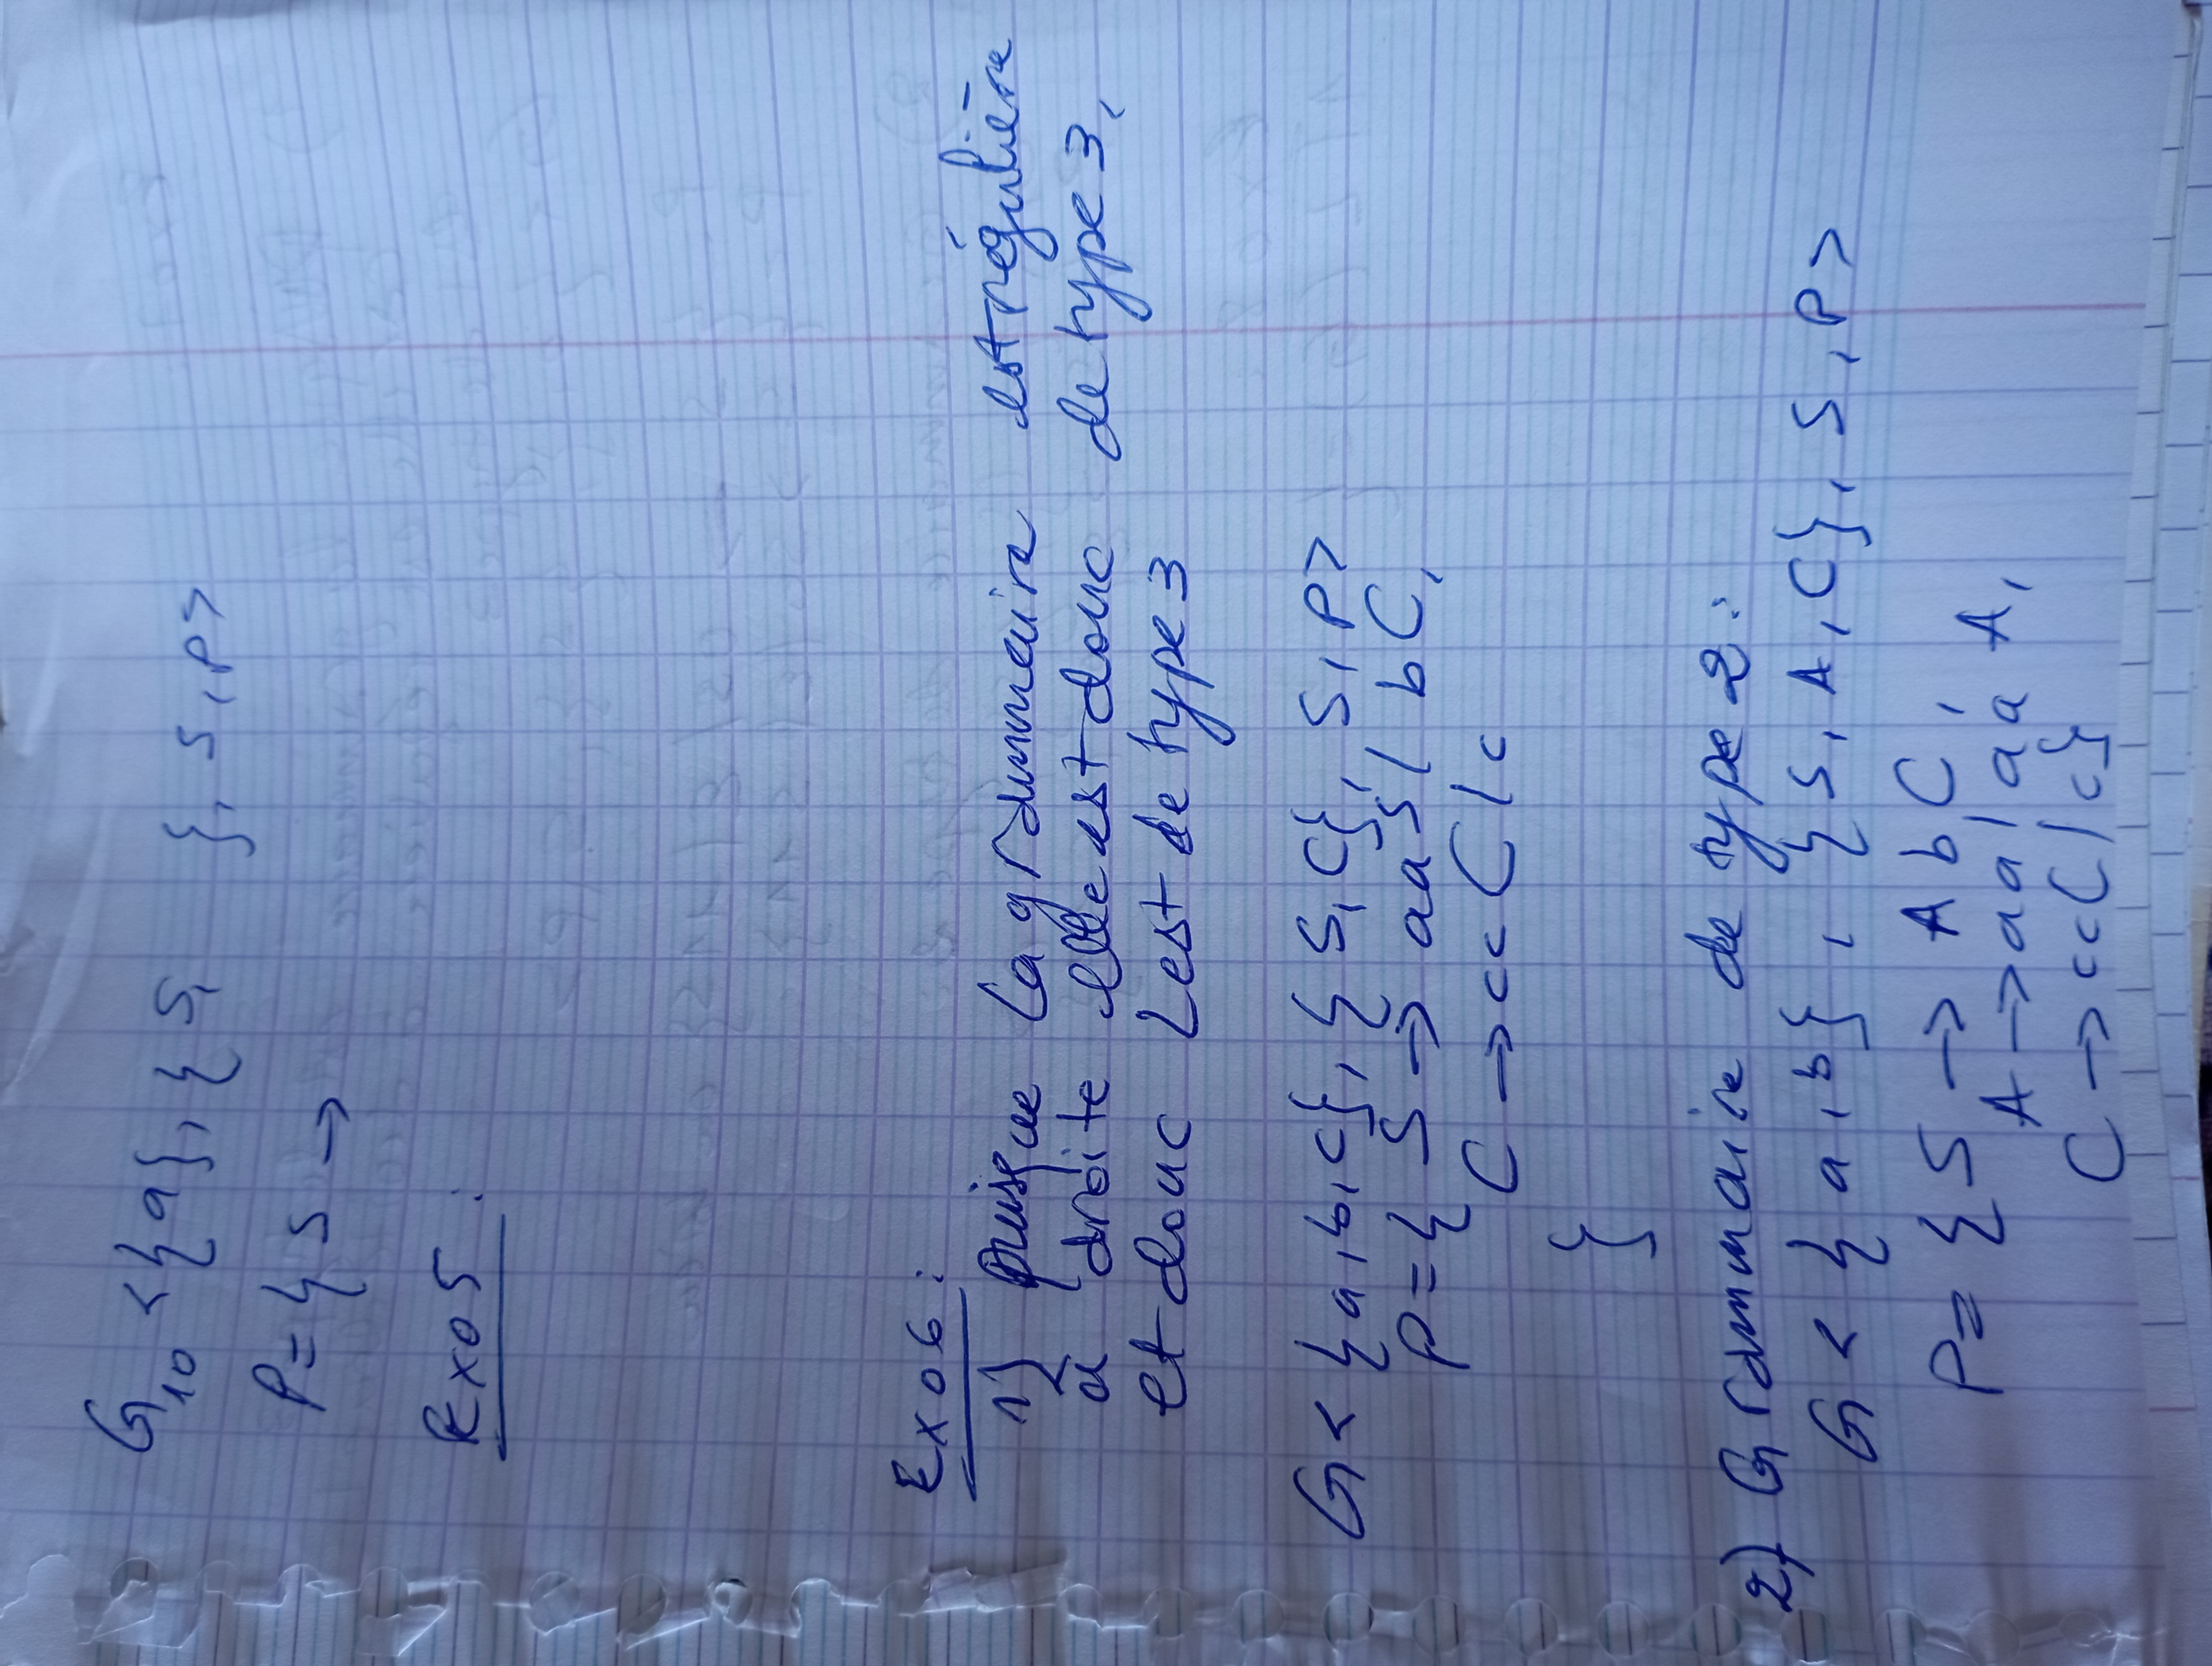 G10 < {a}, { S,      }, S, P >
P = { S →
Exo 5 :
Exo 6 :
1) puisque la grammaire est régulière
à droite elle est donc de type 3,
et donc L est de type 3
G < {a, b, c}, { S, C}, S, P >
P = { S → aaS / bC,
C → ccC / c
}
2) Grammaire de type 2 :
G < { a, b } , { S, A, C}, S, P >
P = { S → A b C ,
A → aa / aa A,
C → ccC / c}